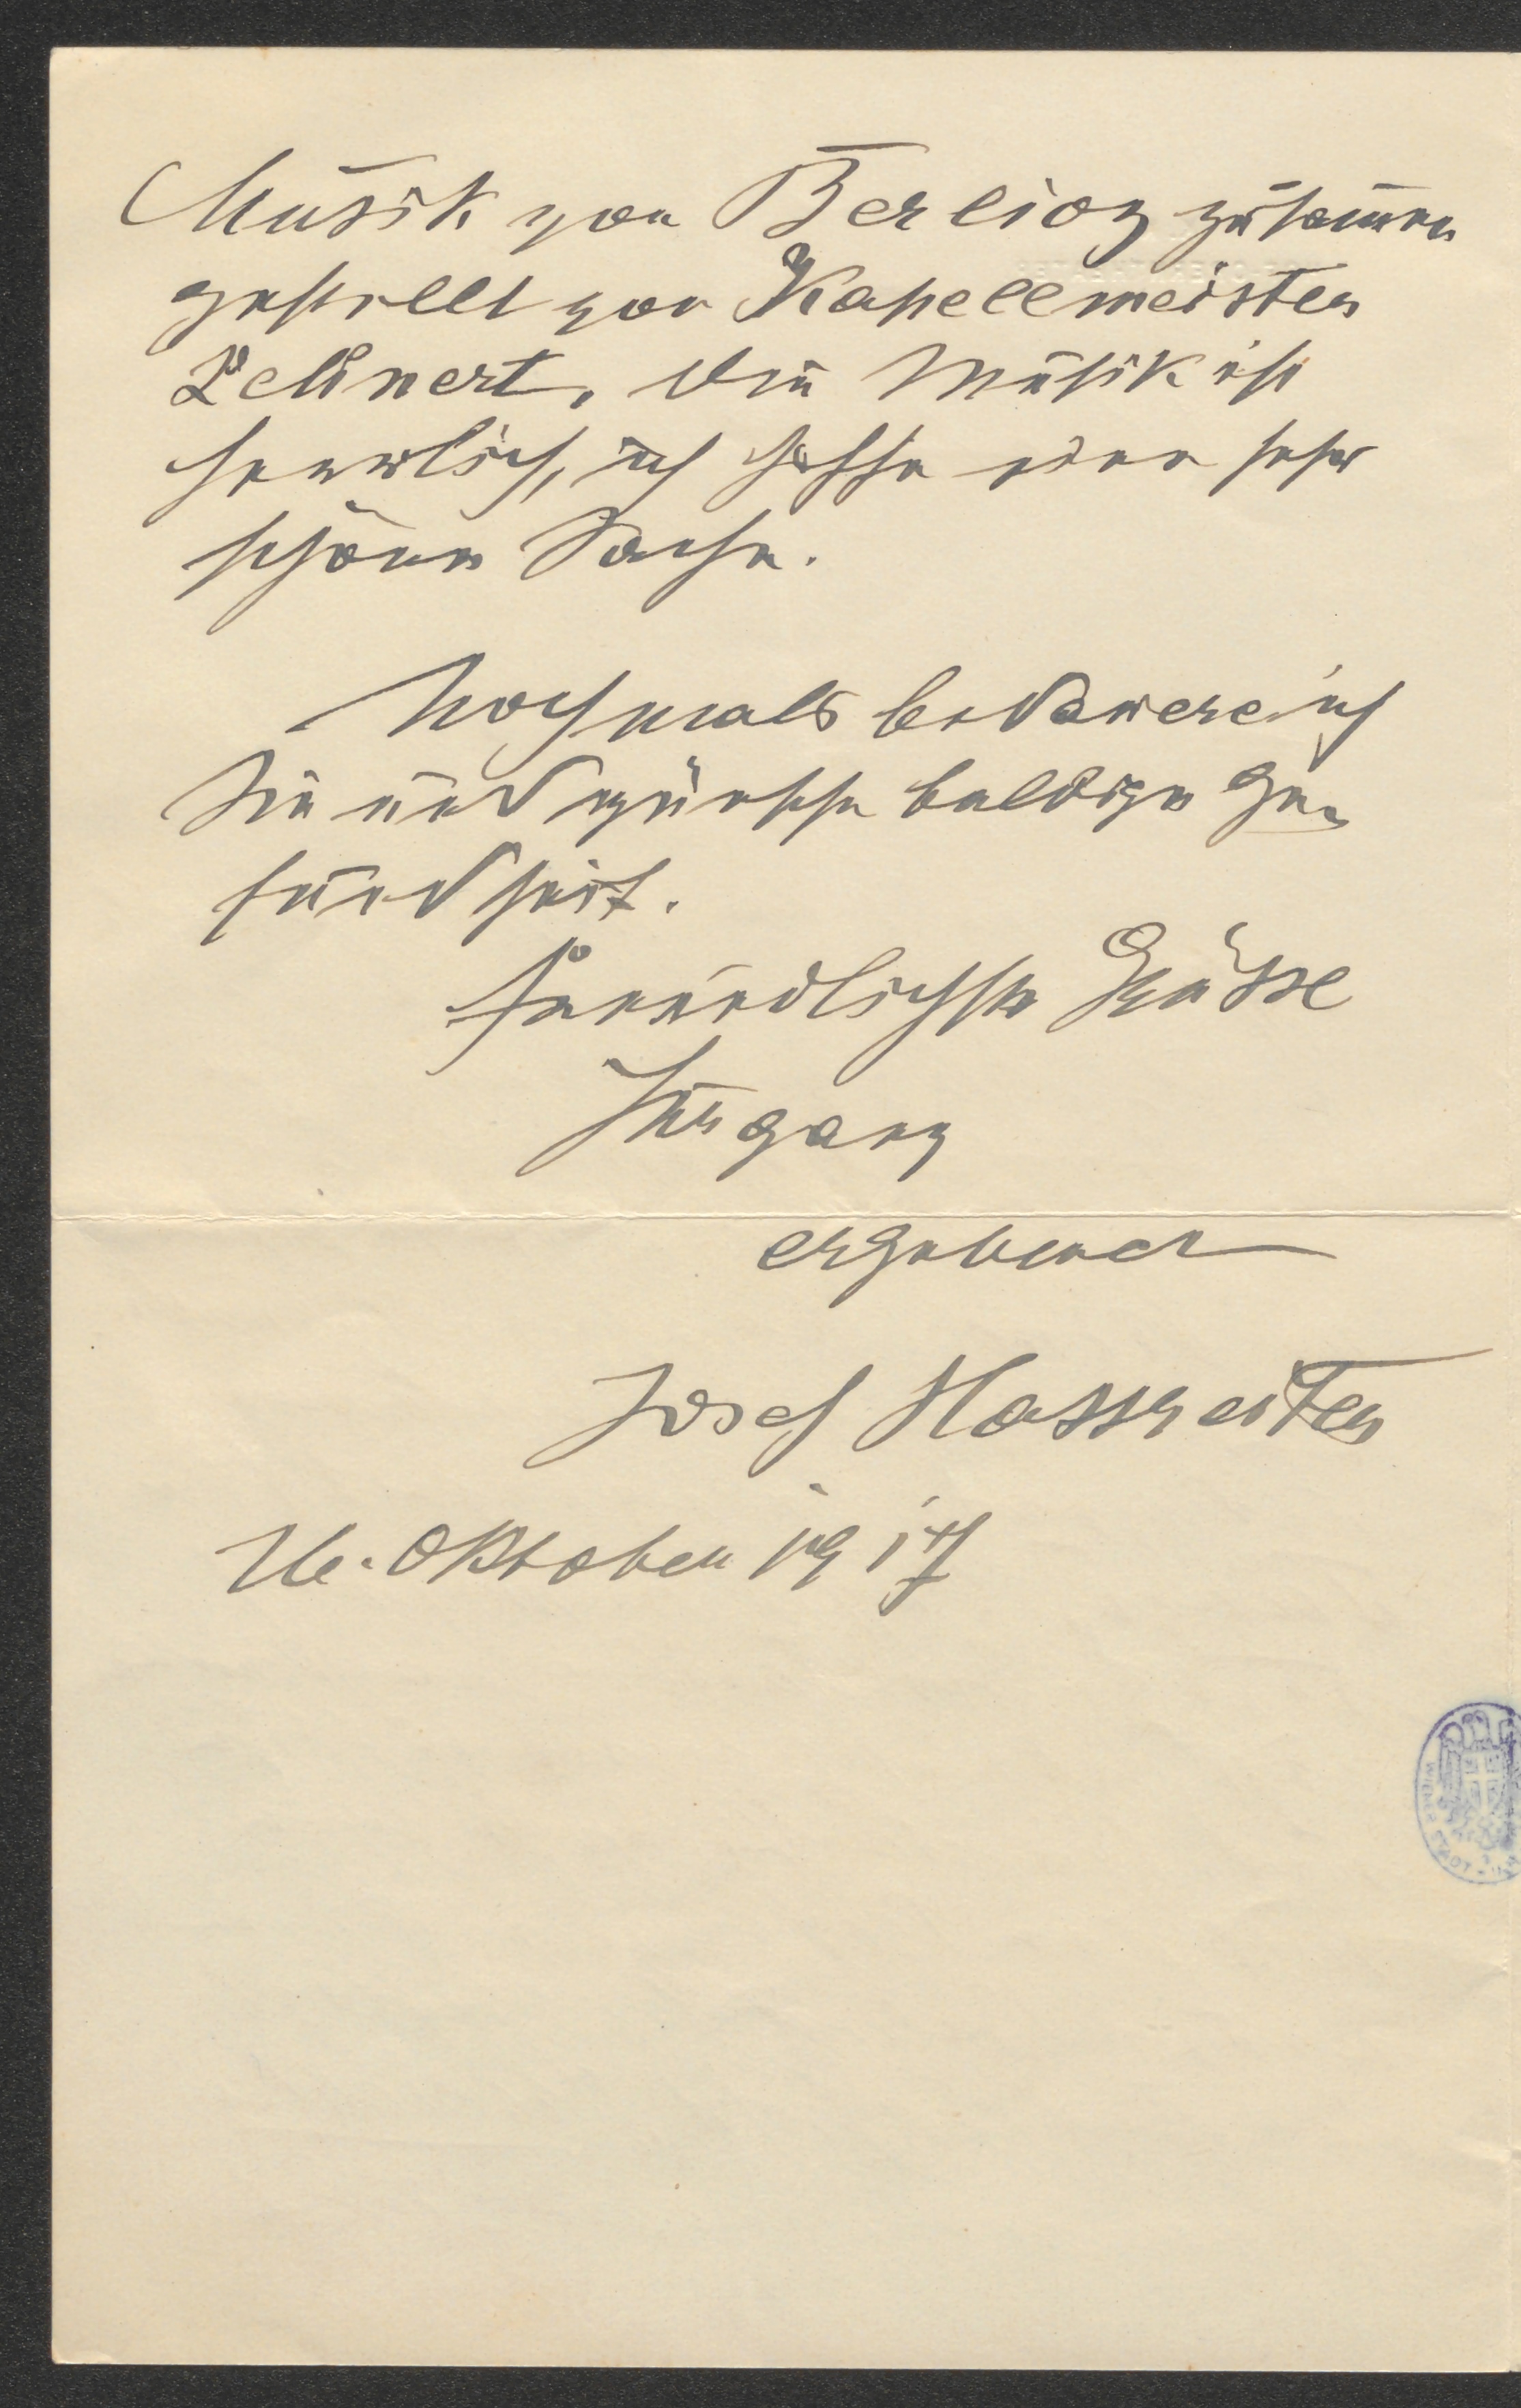 Musik von Berlioz zusam̅en
gestellt von Kapellmeister
Lehnert. Die Musik ist
herrlich, ich hoffe eine sehr
schöne Sache.
Nochmals bedauere ich
Sie und wünsche baldige Ge-
sundheit.
Freundlichste Grüsse
Ihr ganz
ergebener
Josef Hassreiter
Oktober 1917
WIENER STADT-